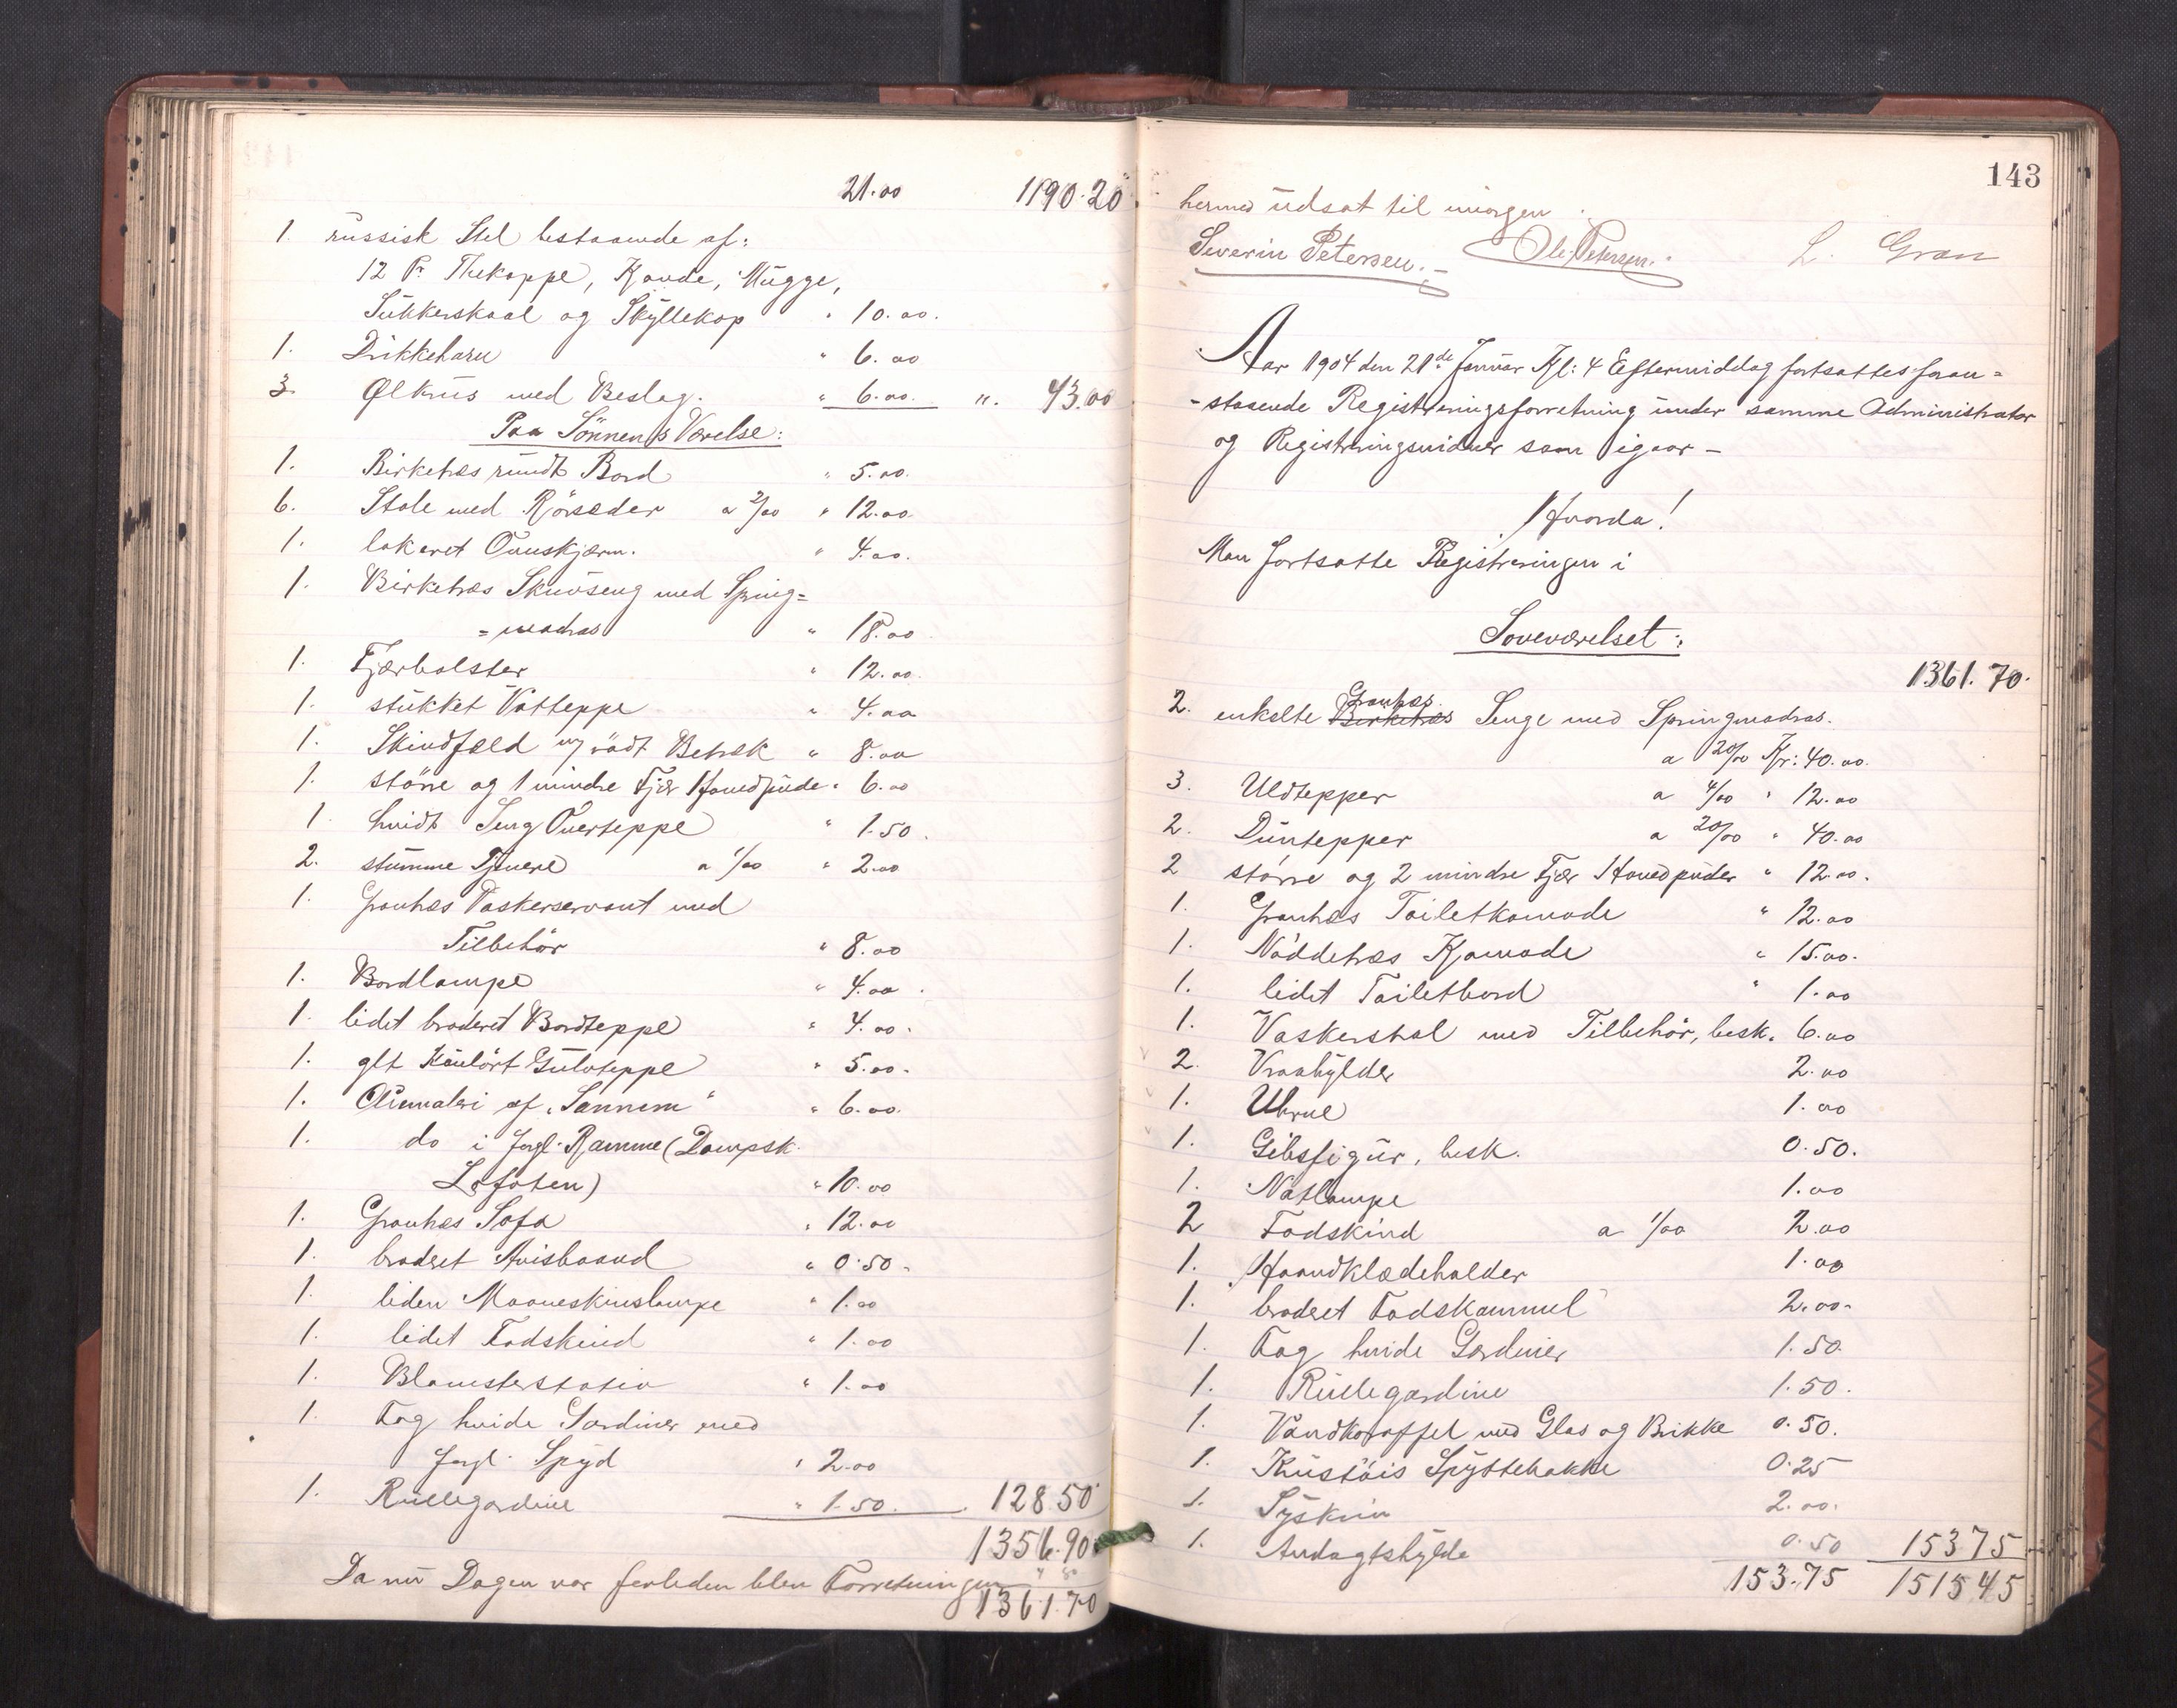 21.00 1190.20
1. russisk Stel bestaaende af:
12 Pr Thekoppe, Kande, Mugge,
Sukkerskaal og Skyllekop " 10.00.
1. Drikkehorn " 6.00
3. Ølkrus med Beslag. " 6.00. ". 43.00
Paa Sönnens Værelse:
1. Birketræs rundt Bord " 5.00.
6. Stole med Rörsæder a 2/00 " 12.00.
1. lakeret Ovnskjærm. " 4.00.
1. Birketræs Skuvseng med Spring=
=madras " 18.00
1. Fjærbolster " 12.00.
1. stukket Vatteppe " 4.00
1. Skindfæld m/ rödt Betræk " 8.00
1. större og 1 mindre Fjær Hovedpude " 6.00
1. hvidt Seng Overteppe " 1.50.
2. stumme Tjenere a 1/00 " 2.00
1. Grantræs Vaskerservant med
Tilbehör " 8.00
1. Bordlampe " 4.00.
1. lidet broderet Bordteppe " 4.00.
1. glt Kaulört Gulvteppe " 5.00.
1. Oliemaleri af "Sannem" " 6.00.
1. do i forgl. Ramme (Dampsk.
Lofoten) " 10.00
1. Grantræs Sofa " 12.00
1. broderet Avisbaand " 0.50.
1. liden Maaneskinslampe " 1.00
1. lidet Fodskind " 1.00
1. Blomsterstativ " 1.00
1. Fag hvide Gardiner med
forgl. Spyd " 2.00
1. Rullegardine " 1.50. 128.50
1356.90
Da nu Dagen var forleden blev Forretningen
1361.70
143
hermed udsat til imorgen.
Severin Petersen. Ole Petersen. L. Gran
Aar 1904 den 21de Januar Kl: 4 Eftermiddag fortsattes foran=
-staaende Registreringsforretning under samme Administrator
og Registreringsvidner som igaar –
Hvorda!
Man fortsatte Registreringen i
Soveværelset:
1361.70.
2. enkelte Birketræs Grantræs Senge med Springmadras.
a 20/00 Kr: 40.00.
3. Uldtepper a 4/00 " 12.00
2. Duntepper a 20/00 " 40.00
2 större og 2 mindre Fjær Hovedpuder " 12.00.
1. Grantræs Toiletkomode " 12.00
1. Nöddetræs Komode " 15.00.
1. lidet Toiletbord " 1.00
1. Vaskerstol med Tilbehör, besk. 6.00
2. Vraahylder 2.00
1. Uhrue 1.00
1. Gibsfigur, besk. 0.50.
1. Natlampe 1.00
2 Fodskind a 1/00 2.00
1. Haandklædeholder 1.00
1. broderet Fodskammel 2.00.
1. Fag hvide Gardiner 1.50.
1. Rullegardine 1.50.
1. Vandkaraffel med Glas og Brikke 0.50.
1. Krustöis Spyttebakke 0.25
1. Syskrin 2.00.
1. Andagtshylde 0.50 153 75
153.75 1515 45